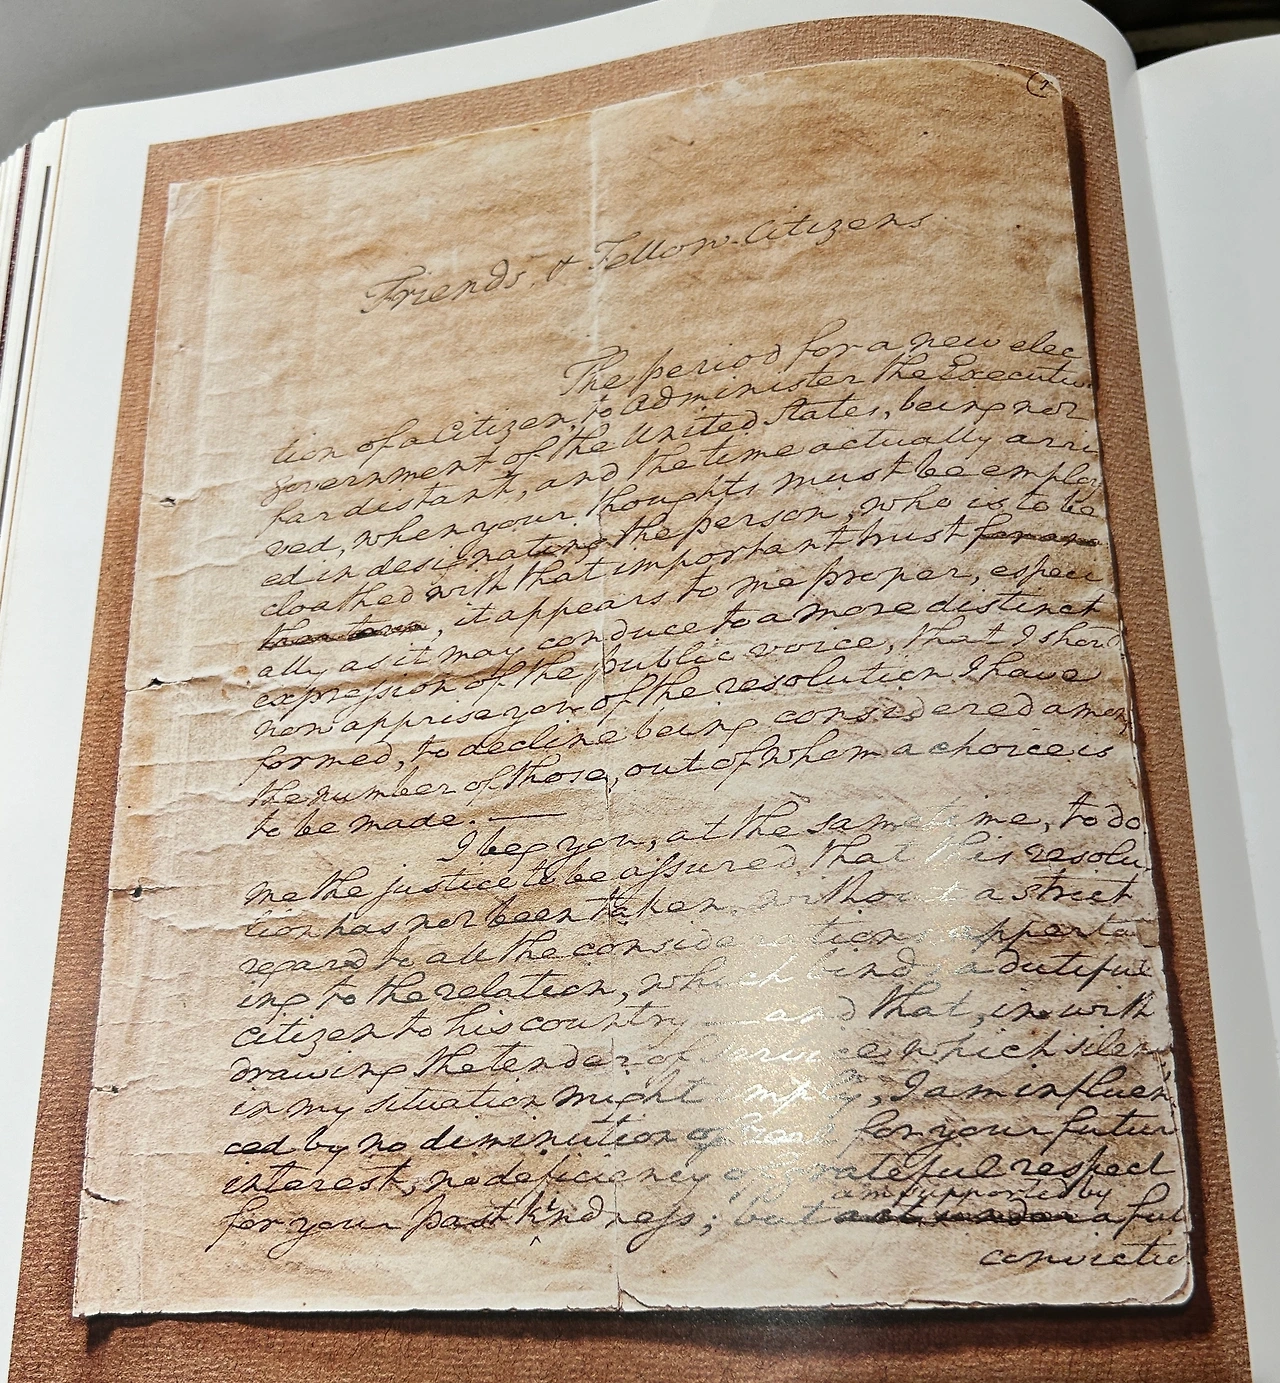 Friends, & Fellow-Citizens
The period for a new elec
tion of a Citizen, to administer the Executive
government of the United States, being not
far distant, and the time actually arri
ved, when your thoughts must be employ
ed in designating the person, who is to be
cloathed with that important trust
, it appears to me proper, especi
ally as it may conduce to a more distinct
expression of the public voice, that I should
now apprise you of the resolution I have
formed, to decline being considered among
the number of those, out of whom a choice is
to be made. —
I beg you, at the same time, to do
me the justice to be assured that this resolu
tion has not been taken, without a strict
regard to all the considerations appertain
ing to the relation, which binds a dutiful
citizen to his country — and that, in with
drawing the tender of service which silence
in my situation might imply, I am influen
ced by no diminution of zeal for your future
interest, no deficiency of grateful respect
am supported by
for your past kindness; but a full
conviction